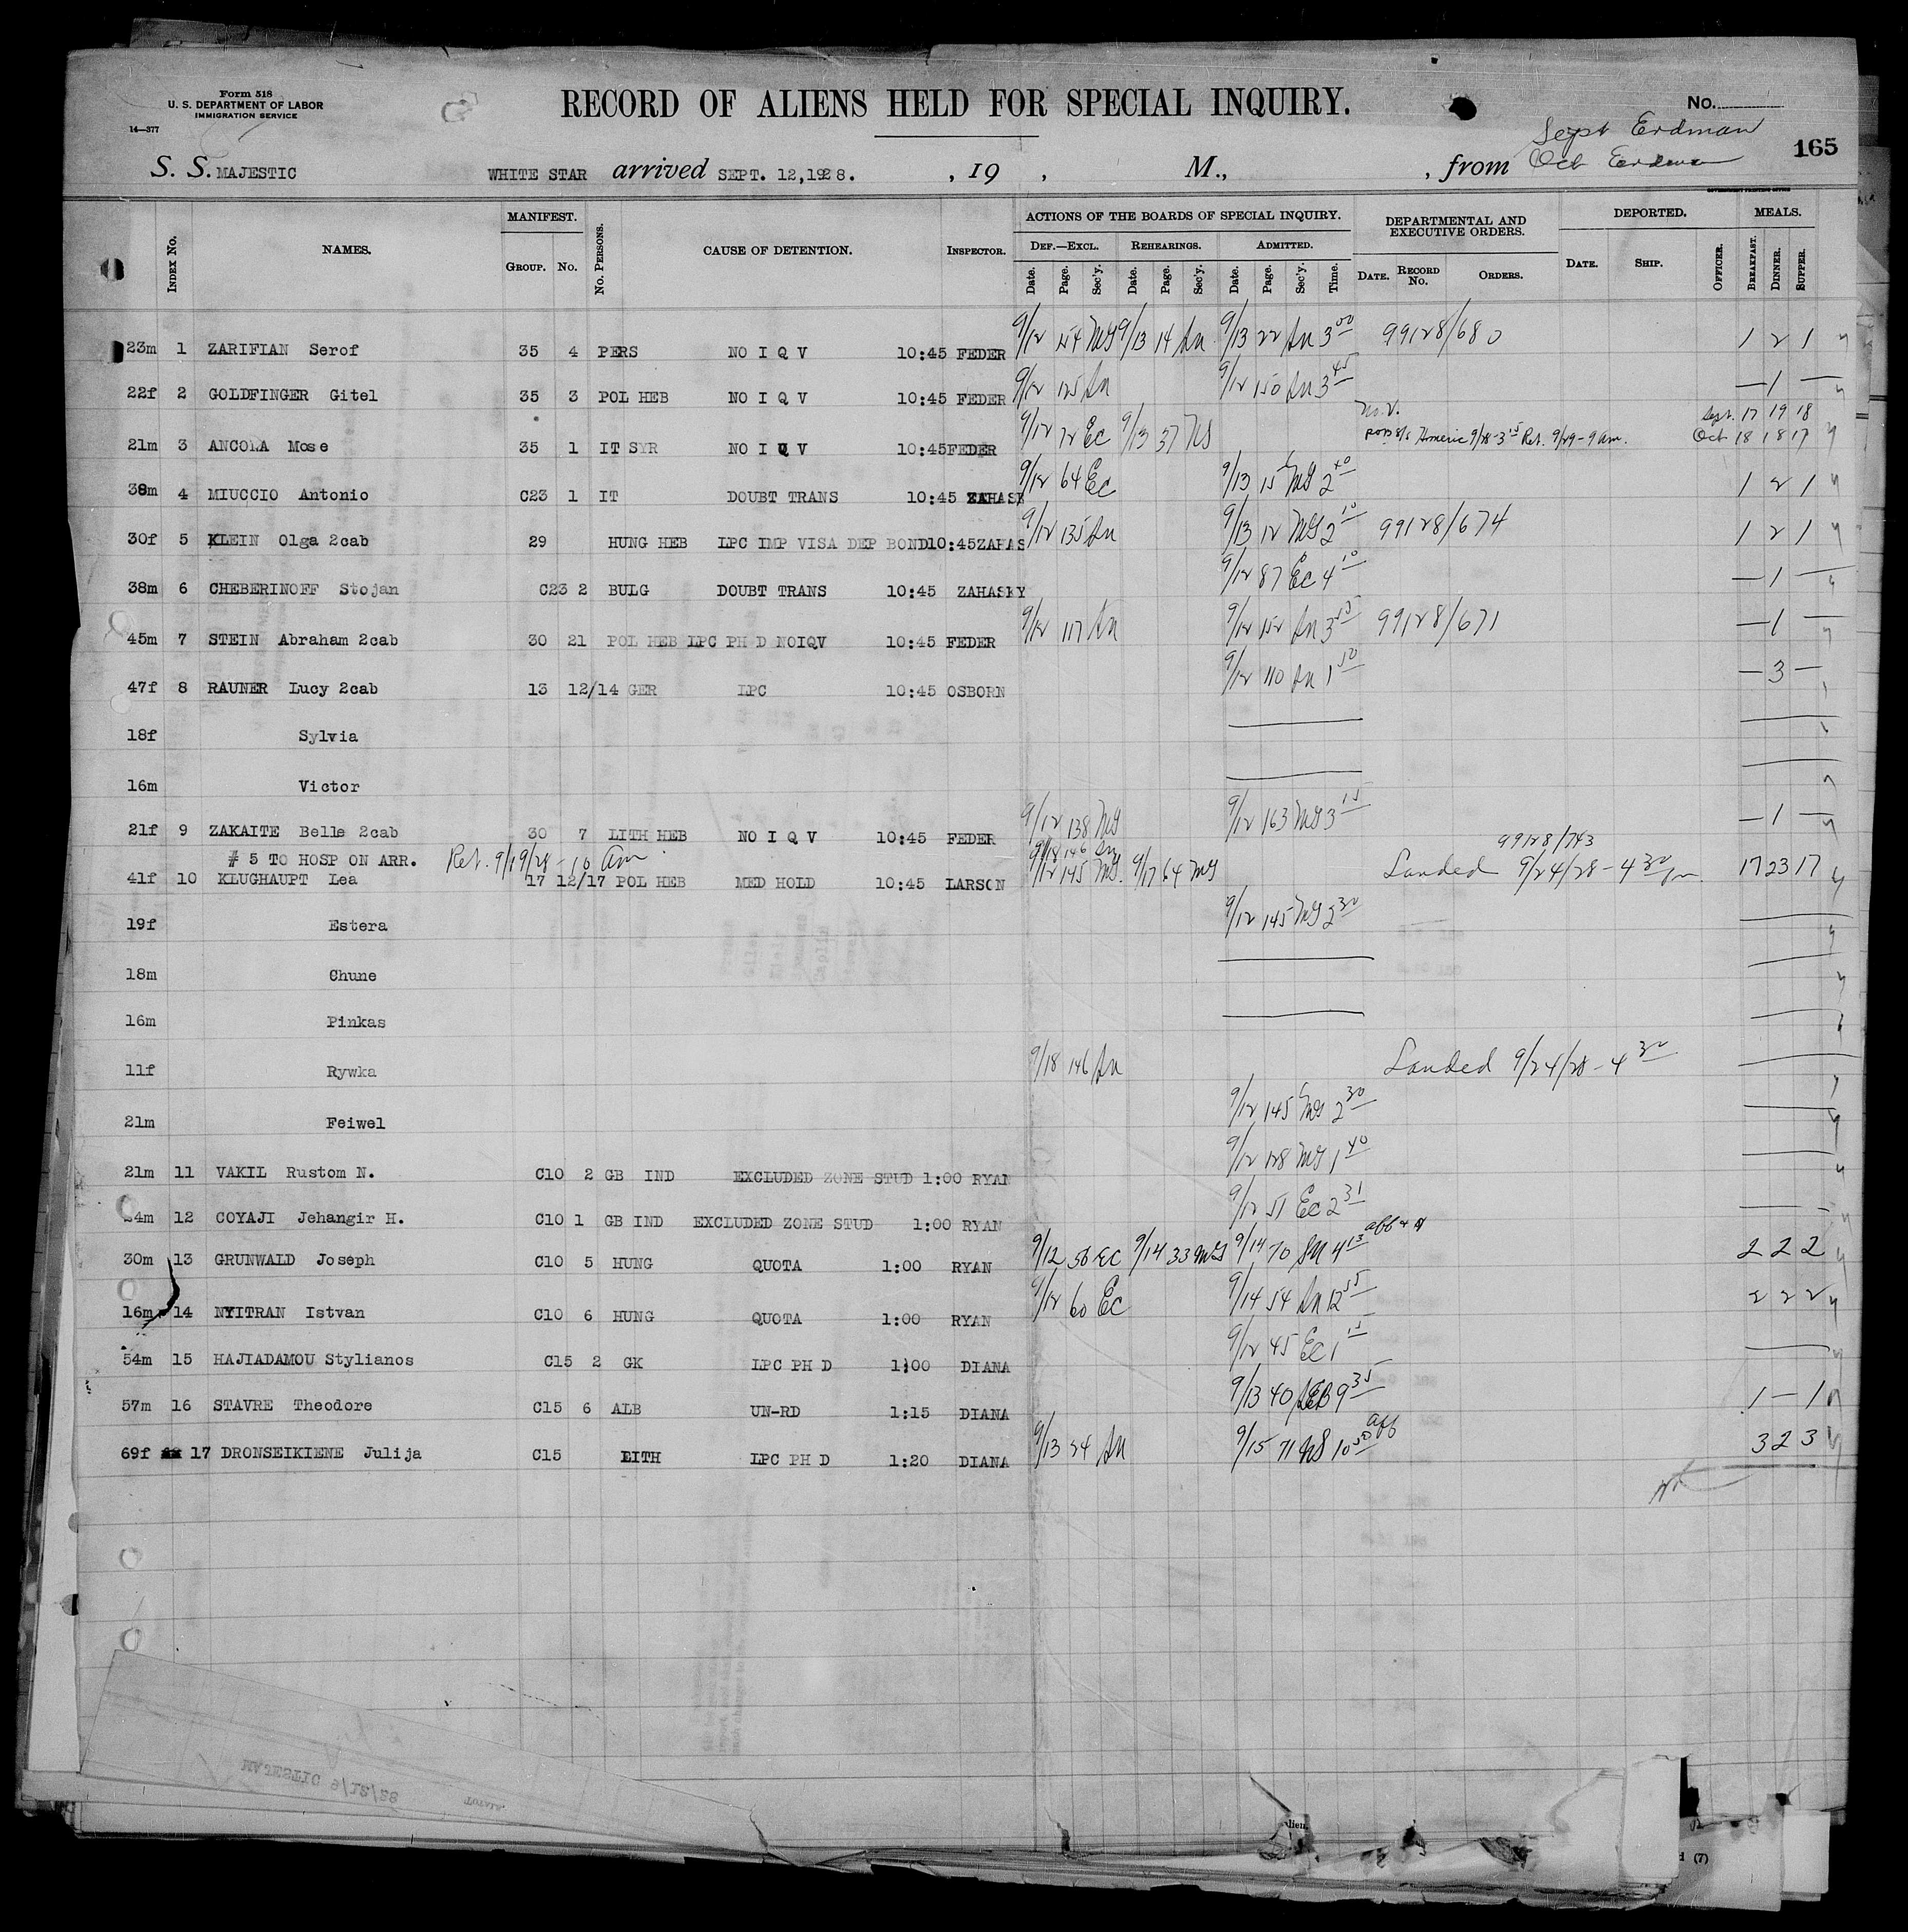 Form 518
U. S. DEPARTMENT OF LABOR
IMMIGRATION SERVICE
14—377
RECORD OF ALIENS HELD FOR SPECIAL INQUIRY.
No.
Sept Erdman
165
S. S. MAJESTIC WHITE STAR arrived SEPT. 12,1928. , 19 , M., , from Oct Erdman
INDEX NO. NAMES. MANIFEST. GROUP. NO. NO. PERSONS. CAUSE OF DETENTION. INSPECTOR. ACTIONS OF THE BOARDS OF SPECIAL INQUIRY. DEPARTMENTAL AND EXECUTIVE ORDERS. DEPORTED. MEALS.
DEF.—EXCL. REHEARINGS. ADMITTED.
Date. Page. Sec'y. Date. Page. Sec'y. Date. Page. Sec'y. Time. DATE. RECORD NO. ORDERS. DATE. SHIP. OFFICER. BREAKFAST. DINNER. SUPPER.
23m 1 ZARIFIAN Serof 35 4 PERS NO I Q V 10:45 FEDER 9/12 MG 9/13 14 An 9/13 22 An 3 00 99128/680 1 2 1
22f 2 GOLDFINGER Gitel 35 3 POL HEB NO I Q V 10:45 FEDER 9/12 125 An 9/12 150 An 3 45 — 1 —
Sept. 17 19 18
21m 3 ANCONA Mose 35 1 IT SYR NO I Q V 10:45 FEDER 9/12 72 Ec 9/13 37 NS S/S Homeric 9/28-3 15 Ret. 9/29-9 am. Oct 18 18 17
38m 4 MIUCCIO Antonio C23 1 IT DOUBT TRANS 10:45 ZAHASK 9/12 64 Ec 9/13 15 MG 2 40 1 2 1
30f 5 KLEIN Olga 2cab 29 HUNG HEB LPC IMP VISA DEP BOND 10:45 ZAHAS 9/12 135 An 9/13 12 MG 2 10 99128/674 1 2 1
38m 6 CHEBERINOFF Stojan C23 2 BULG DOUBT TRANS 10:45 ZAHASKY 9/12 87 Ec 4 10 — 1 —
45m 7 STEIN Abraham 2cab 30 21 POL HEB LPC PH D NOIQV 10:45 FEDER 9/12 117 An 9/12 152 An 3 45 99128/671 — 1 —
47f 8 RAUNER Lucy 2cab 13 12/14 GER LPC 10:45 OSBORN 9/12 110 An 1 50 — 3 —
18f Sylvia
16m Victor
21f 9 ZAKAITE Belle 2cab 30 7 LITH HEB NO I Q V 10:45 FEDER 9/12 138 MG 9/12 163 MG 3 15 — 1 —
# 5 TO HOSP ON ARR. Ret. 9/19/28 - 10 am 9/18 146 An 99128/743
41f 10 KLUGHAUPT Lea 17 12/17 POL HEB MED HOLD 10:45 LARSON 9/12 145 MG. 9/17 64 MG Landed 9/24/28 - 4 30 pm 17 23 17
19f Estera 9/12 145 MG 2 30
18m Chune
16m Pinkas
11f Rywka 9/18 146 An Landed 9/24/28 - 4 30
21m Feiwel 9/12 145 MG 2 30
21m 11 VAKIL Rustom N. C10 2 GB IND EXCLUDED ZONE STUD 1:00 RYAN 9/12 128 MG 1 40
24m 12 COYAJI Jehangir H. C10 1 GB IND EXCLUDED ZONE STUD 1:00 RYAN 9/12 51 Ec 2 31
30m 13 GRUNWALD Joseph C10 5 HUNG QUOTA 1:00 RYAN 9/12 56 EC 9/14 33 MG 9/14 70 4 15 2 2 2
16m 14 NYITRAN Istvan C10 6 HUNG QUOTA 1:00 RYAN 9/12 60 Ec 9/14 54 An 12 55 2 2 2
54m 15 HAJIADAMOU Stylianos C15 2 GK LPC PH D 1:00 DIANA 9/12 45 Ec 1 15
57m 16 STAVRE Theodore C15 6 ALB UN-RD 1:15 DIANA 9/13 40 9 35 1 — 1
69f 17 DRONSEIKIENE Julija C15 LITH LPC PH D 1:20 DIANA 9/13 24 An 9/15 71 NS 10 50 aff 3 2 3
MAJESTIC 9/12/28
TOTALS
lien.
(7)